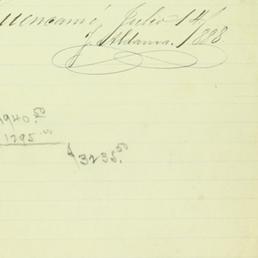 uencamé, Julio 14/
J. Aldama. 1888
1940.50
1295.00
$3235.50